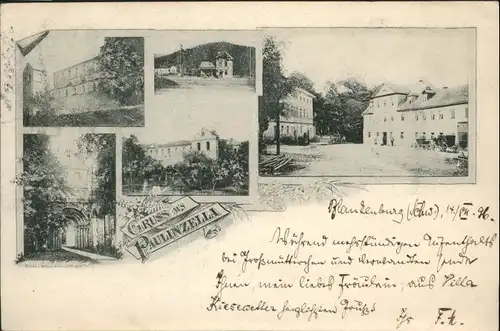 GRUSS aus
PAULINZELLA
Blankenburg (Thür.), 14/VII. 96.
Während mehrstündigen Aufenthalts
bei Großmütterchen und Verwandten sende
Ihnen, mein liebes Fräulein, aus Villa
Kiesewetter herzlichsten Gruß!